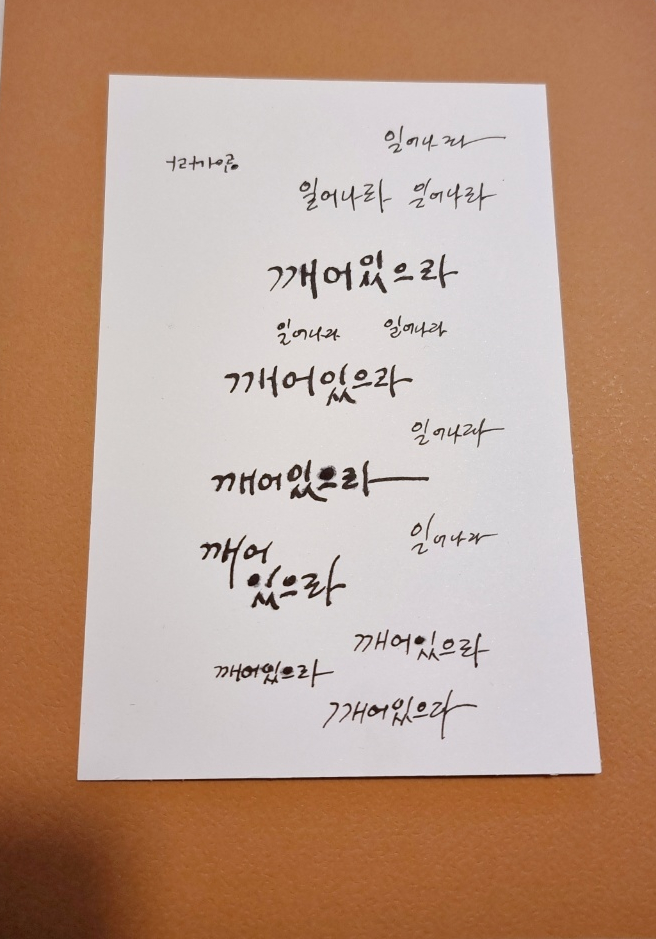 일어나라
일어나라 일어나라
깨어있으라
일어나라 일어나라
깨어있으라
일어나라
깨어있으라
일어나라
깨어
있으라
깨어있으라
깨어있으라
깨어있으라